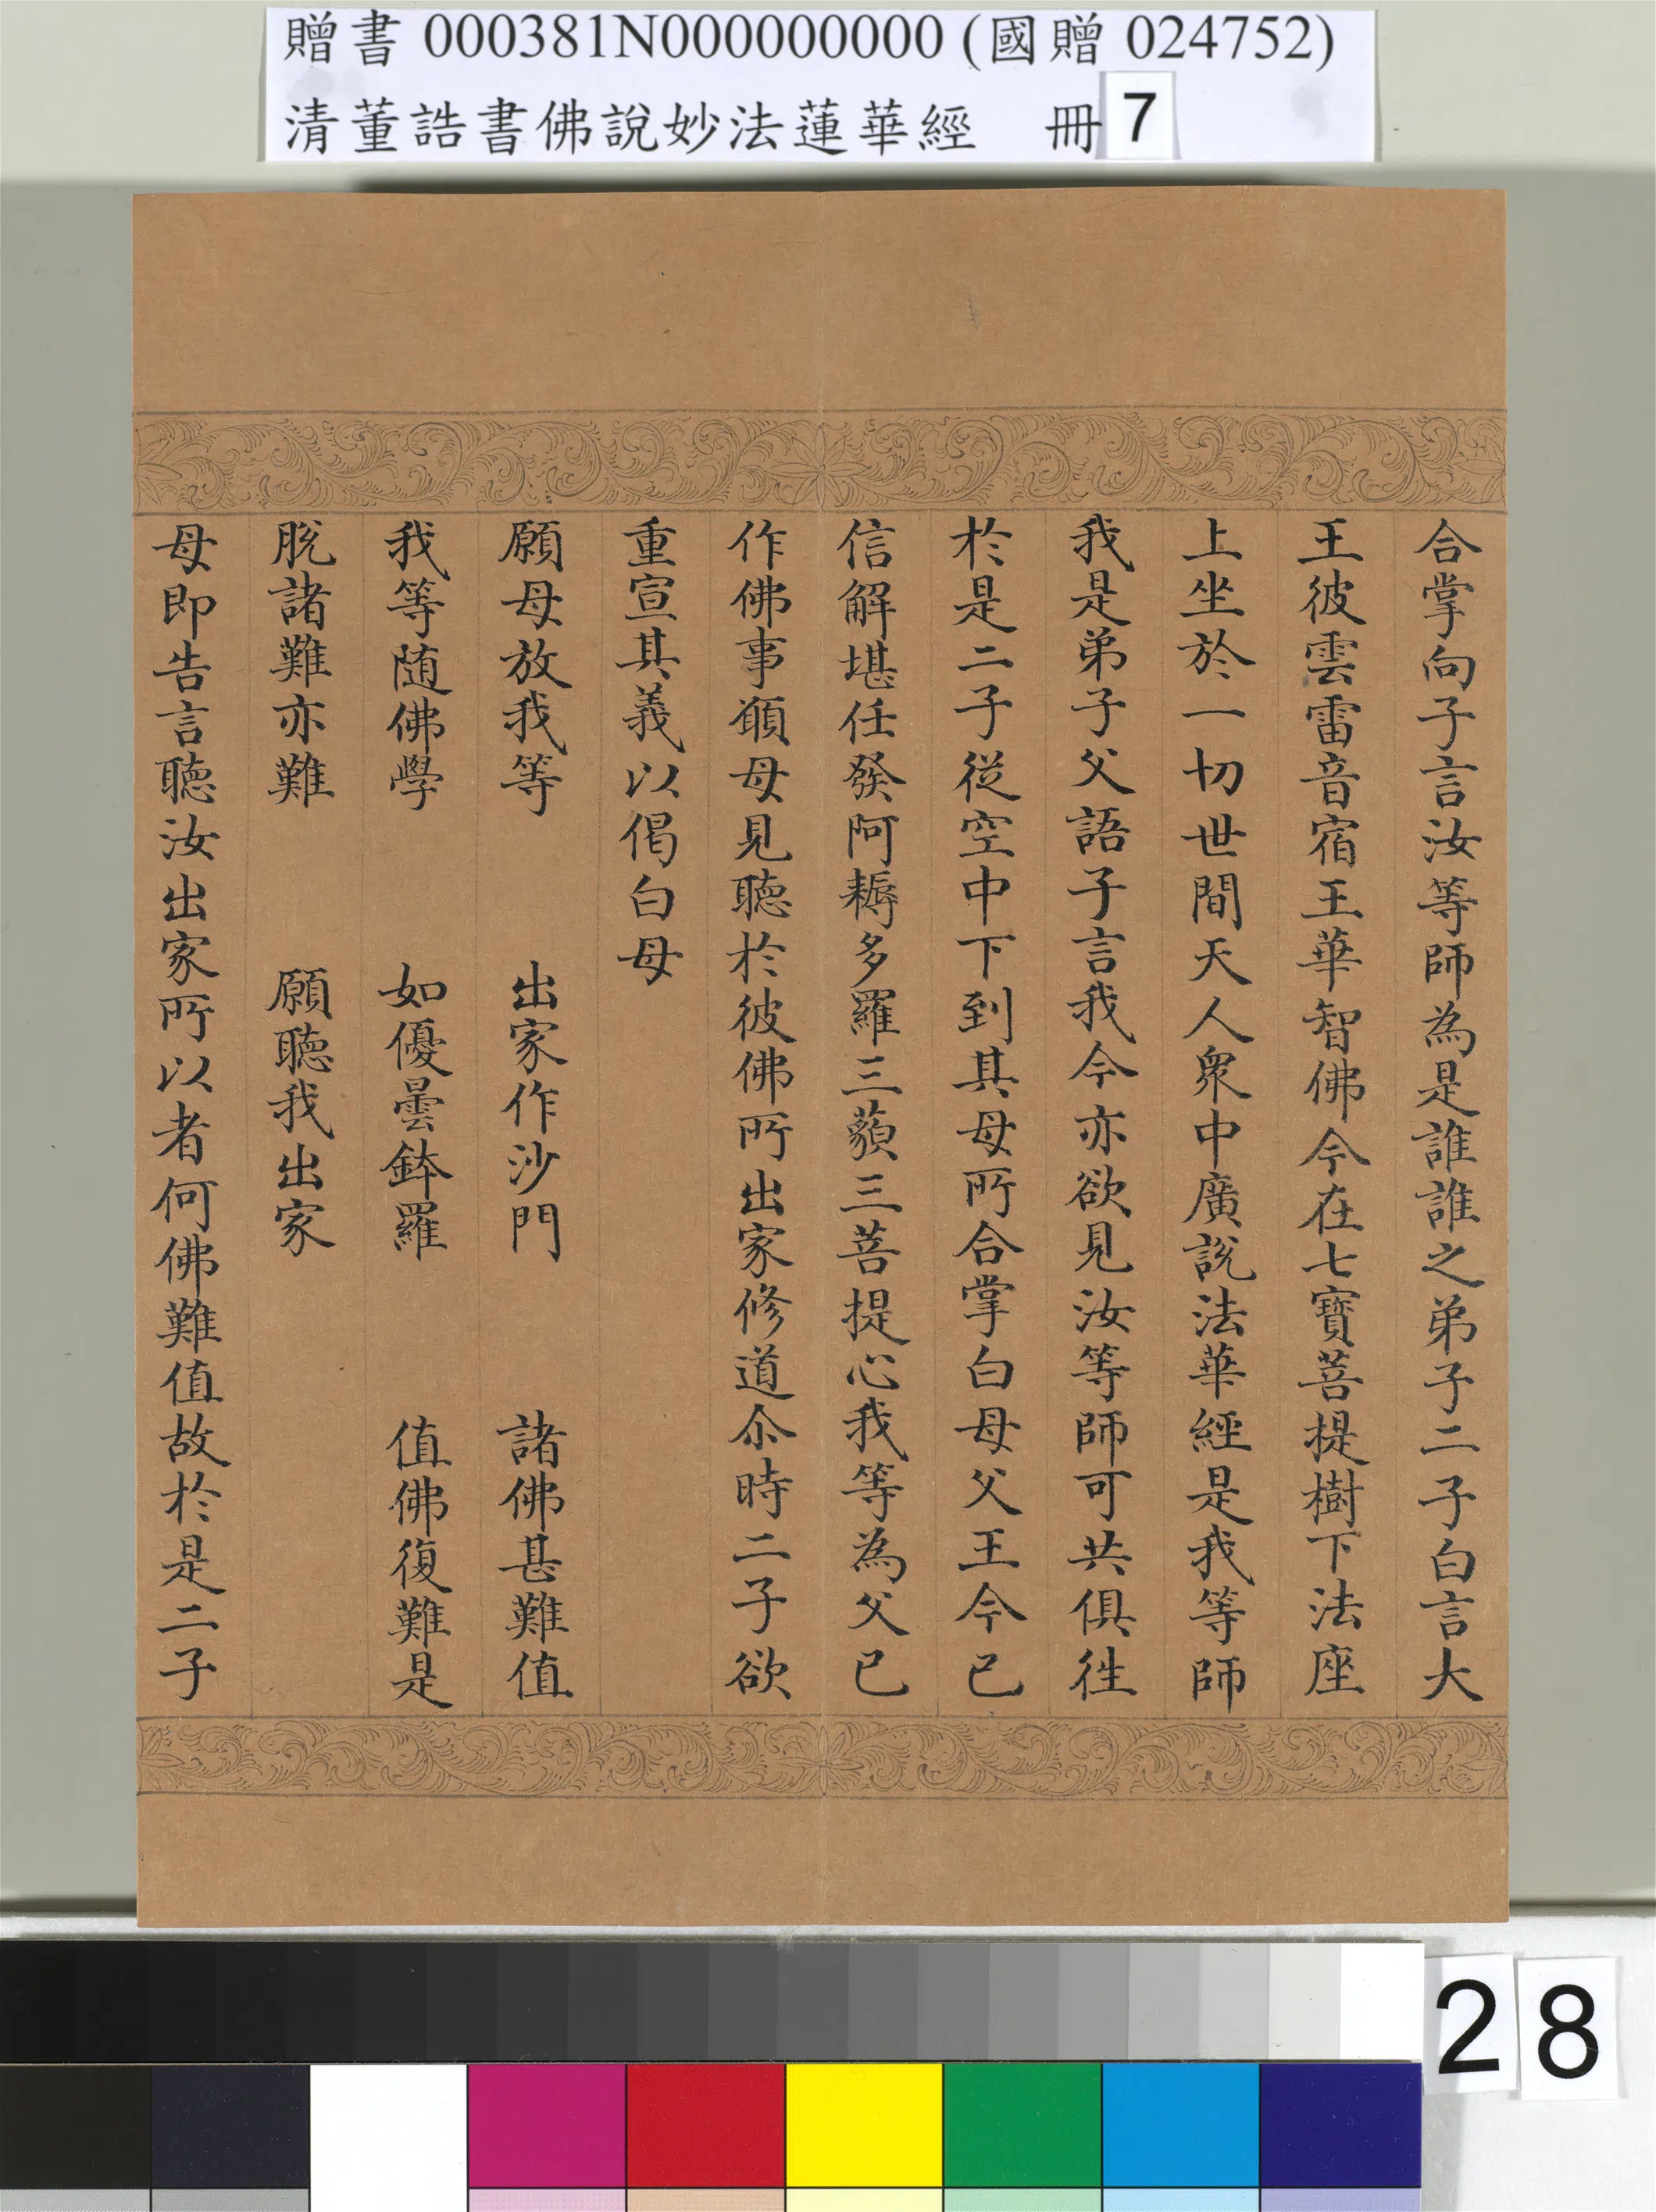 贈書 000381N000000000 (國贈 024752)
清董誥書佛說妙法蓮華經 冊 7
合掌向子言汝等師為是誰誰之弟子二子白言大
王彼雲雷音宿王華智佛今在七寶菩提樹下法座
上坐於一切世間天人衆中廣說法華經是我等師
我是弟子父語子言我今亦欲見汝等師可共俱徃
於是二子從空中下到其母所合掌白母父王今已
信解堪任發阿耨多羅三藐三菩提心我等為父已
作佛事願母見聽於彼佛所出家修道尒時二子欲
重宣其義以偈白母
願母放我等 出家作沙門 諸佛甚難值
我等随佛學 如優曇鉢羅 值佛復難是
脫諸難亦難 願聽我出家
母即告言聽汝出家所以者何佛難值故於是二子
28